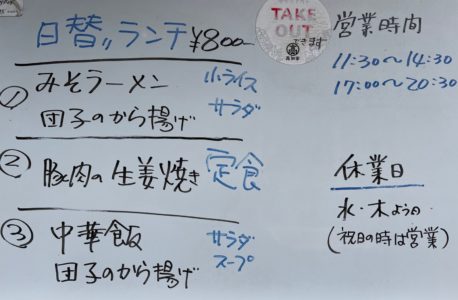 日替〃ランチ ¥800
TAKE
OUT
できます
営業時間
11:30〜14:30
17:00〜20:30
① みそラーメン 小ライス
団子のから揚げ サラダ
② 豚肉の生姜焼き定食
③ 中華飯 サラダ
団子のから揚げ スープ
休業日
水・木ようの
(祝日の時は営業)